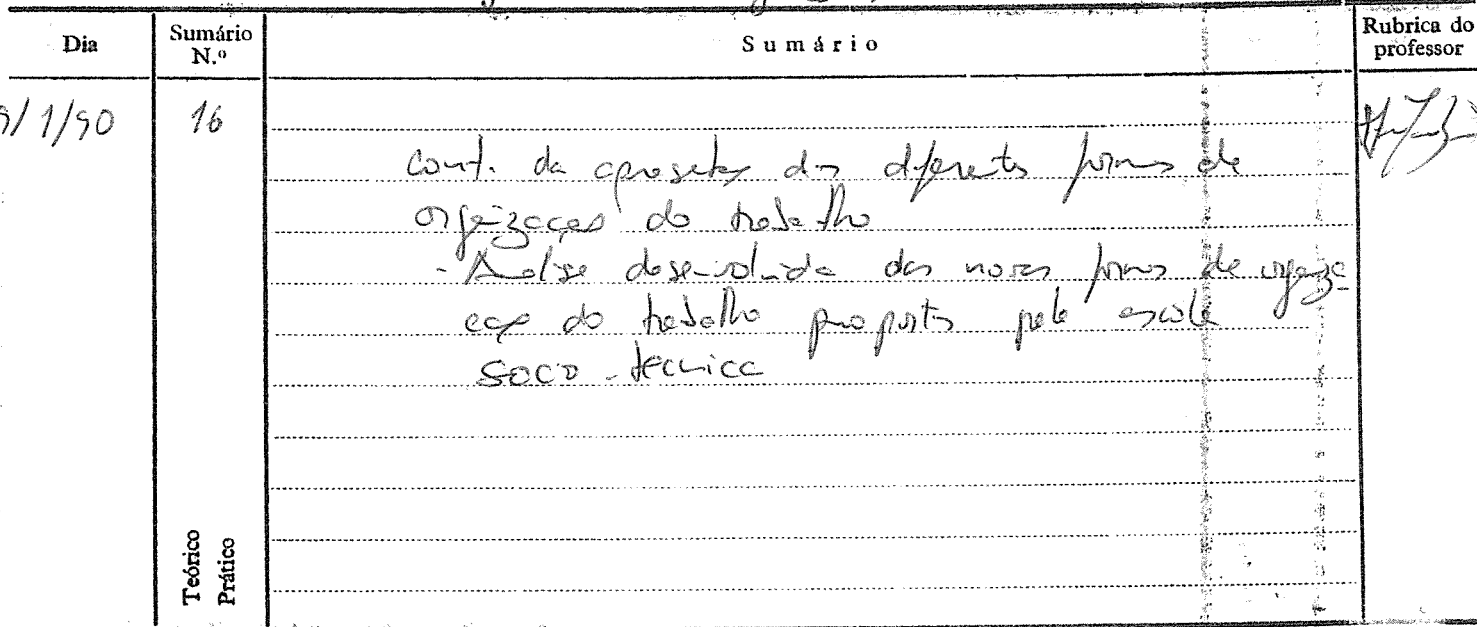 Dia
Sumário N.º
Sumário
Rubrica do professor
9/1/90
16
Cont. da apresentação das diferentes formas de
organização do trabalho
- Análise desenvolvida das novas formas de organiza
ção do trabalho propostas pela escola
socio-técnica
Teórico
Prático